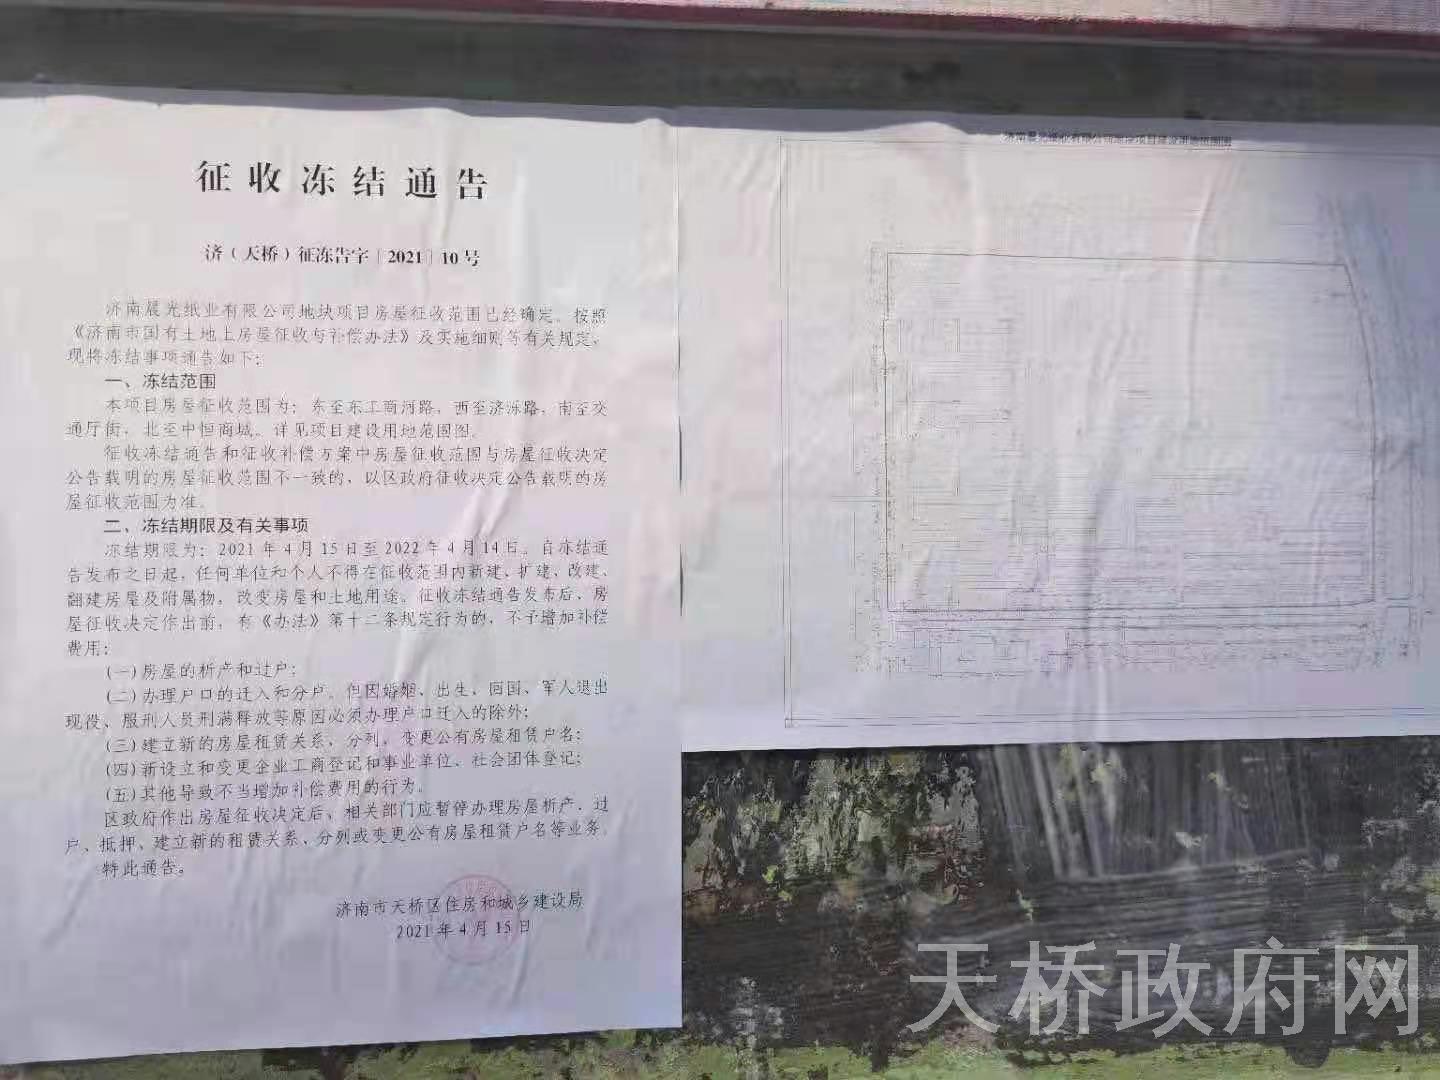 征收冻结通告
济（天桥）征冻告字［2021］10号
济南晨光纸业有限公司地块项目房屋征收范围已经确定。按照
《济南市国有土地上房屋征收与补偿办法》及实施细则等有关规定，
现将冻结事项通告如下：
一、冻结范围
本项目房屋征收范围为：东至东工商河路，西至济泺路，南至交
通厅街，北至中恒商城。详见项目建设用地范围图。
征收冻结通告和征收补偿方案中房屋征收范围与房屋征收决定
公告载明的房屋征收范围不一致的，以区政府征收决定公告载明的房
屋征收范围为准。
二、冻结期限及有关事项
冻结期限为：2021年4月15日至2022年4月14日。自冻结通
告发布之日起，任何单位和个人不得在征收范围内新建、扩建、改建、
翻建房屋及附属物，改变房屋和土地用途。征收冻结通告发布后，房
屋征收决定作出前，有《办法》第十二条规定行为的，不予增加补偿
费用：
(一)房屋的析产和过户；
(二)办理户口的迁入和分户。但因婚姻、出生、回国、军人退出
现役、服刑人员刑满释放等原因必须办理户口迁入的除外；
(三)建立新的房屋租赁关系，分列、变更公有房屋租赁户名；
(四)新设立和变更企业工商登记和事业单位、社会团体登记；
(五)其他导致不当增加补偿费用的行为。
区政府作出房屋征收决定后，相关部门应暂停办理房屋析产、过
户、抵押、建立新的租赁关系、分列或变更公有房屋租赁户名等业务。
特此通告。
济南市天桥区住房和城乡建设局
2021年4月15日
济南晨光纸业有限公司地块项目建设用地范围图
天桥政府网